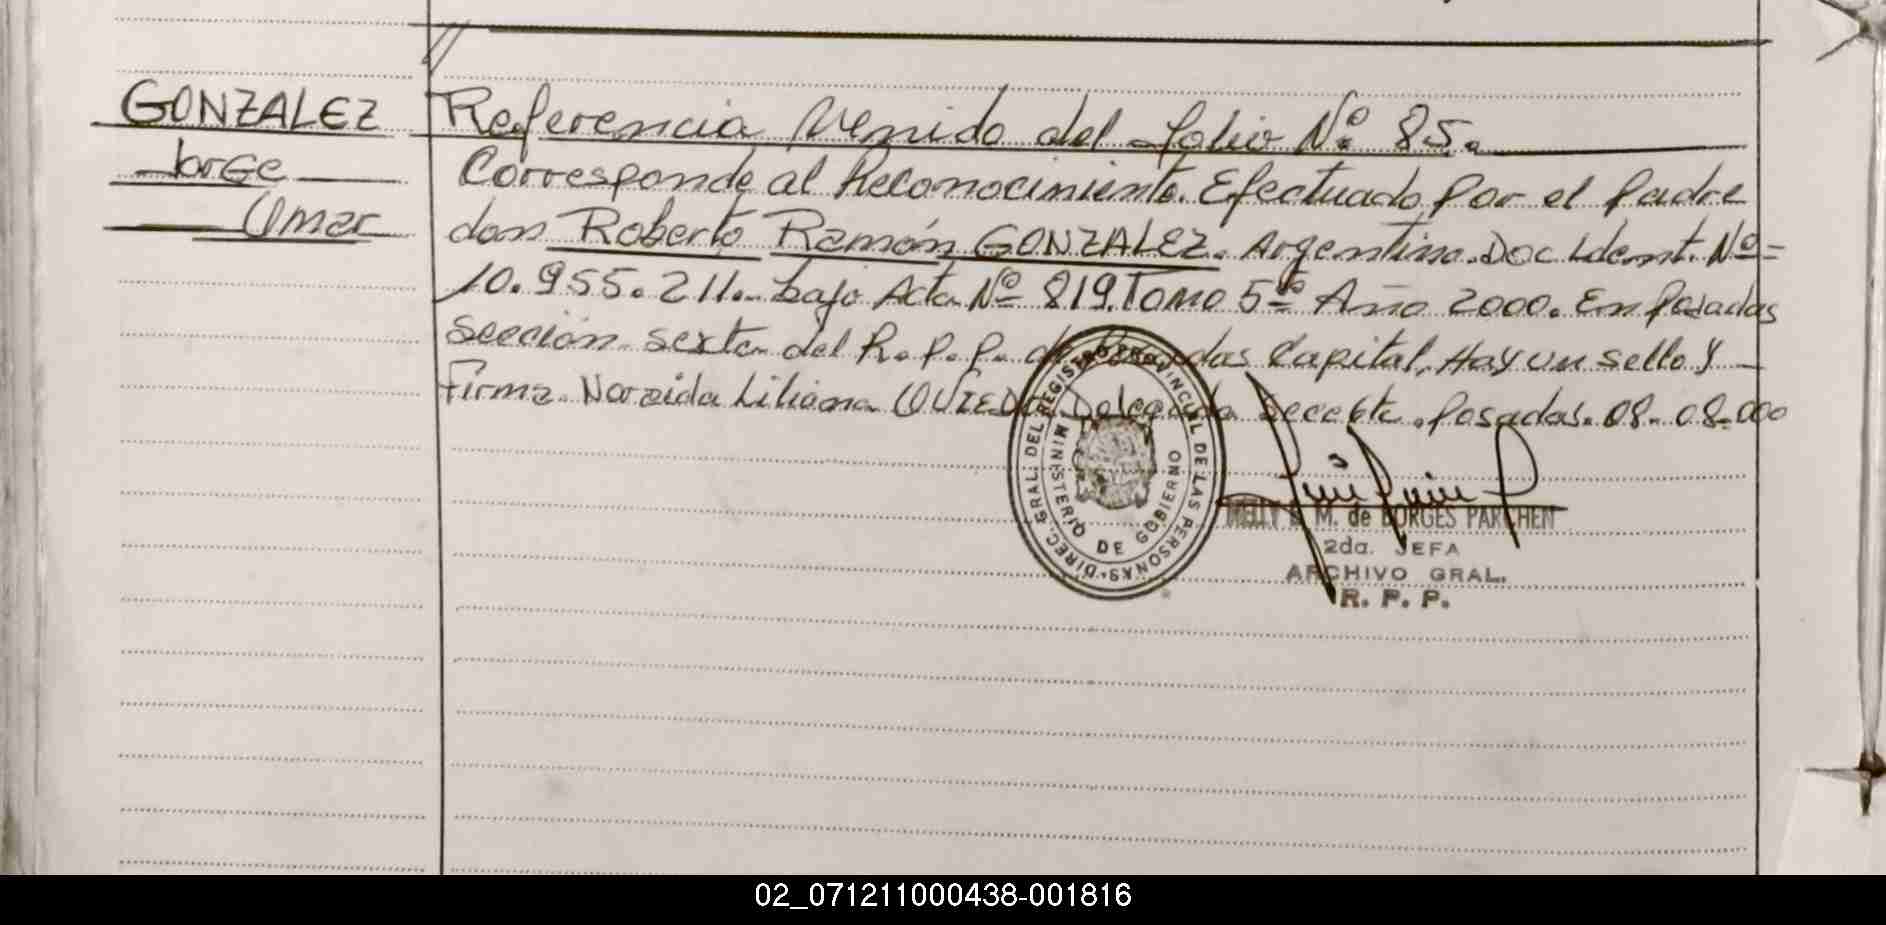 GONZALEZ
Jorge
Omar
Referencia Venido del folio Nº 85.
Corresponde al Reconocimiento. Efectuado por el padre
don Roberto Ramón GONZALEZ. Argentino. Doc Ident. Nº=
10.955.211. bajo Acta Nº 819. Tomo 5º Año 2000. En Posadas
Sección sexta del R.P.P. de Posadas Capital, Hay un sello y
Firma. Noraida Liliana OVIEDO. Delegada Secc 6ta. Posadas. 08-08-000
DIREC. GRAL. DEL REGISTRO PROVINCIAL DE LAS PERSONAS
MINISTERIO DE GOBIERNO
M. de BORGES PARCHEN
2da. JEFA
ARCHIVO GRAL.
R. P. P.
02_071211000438-001816